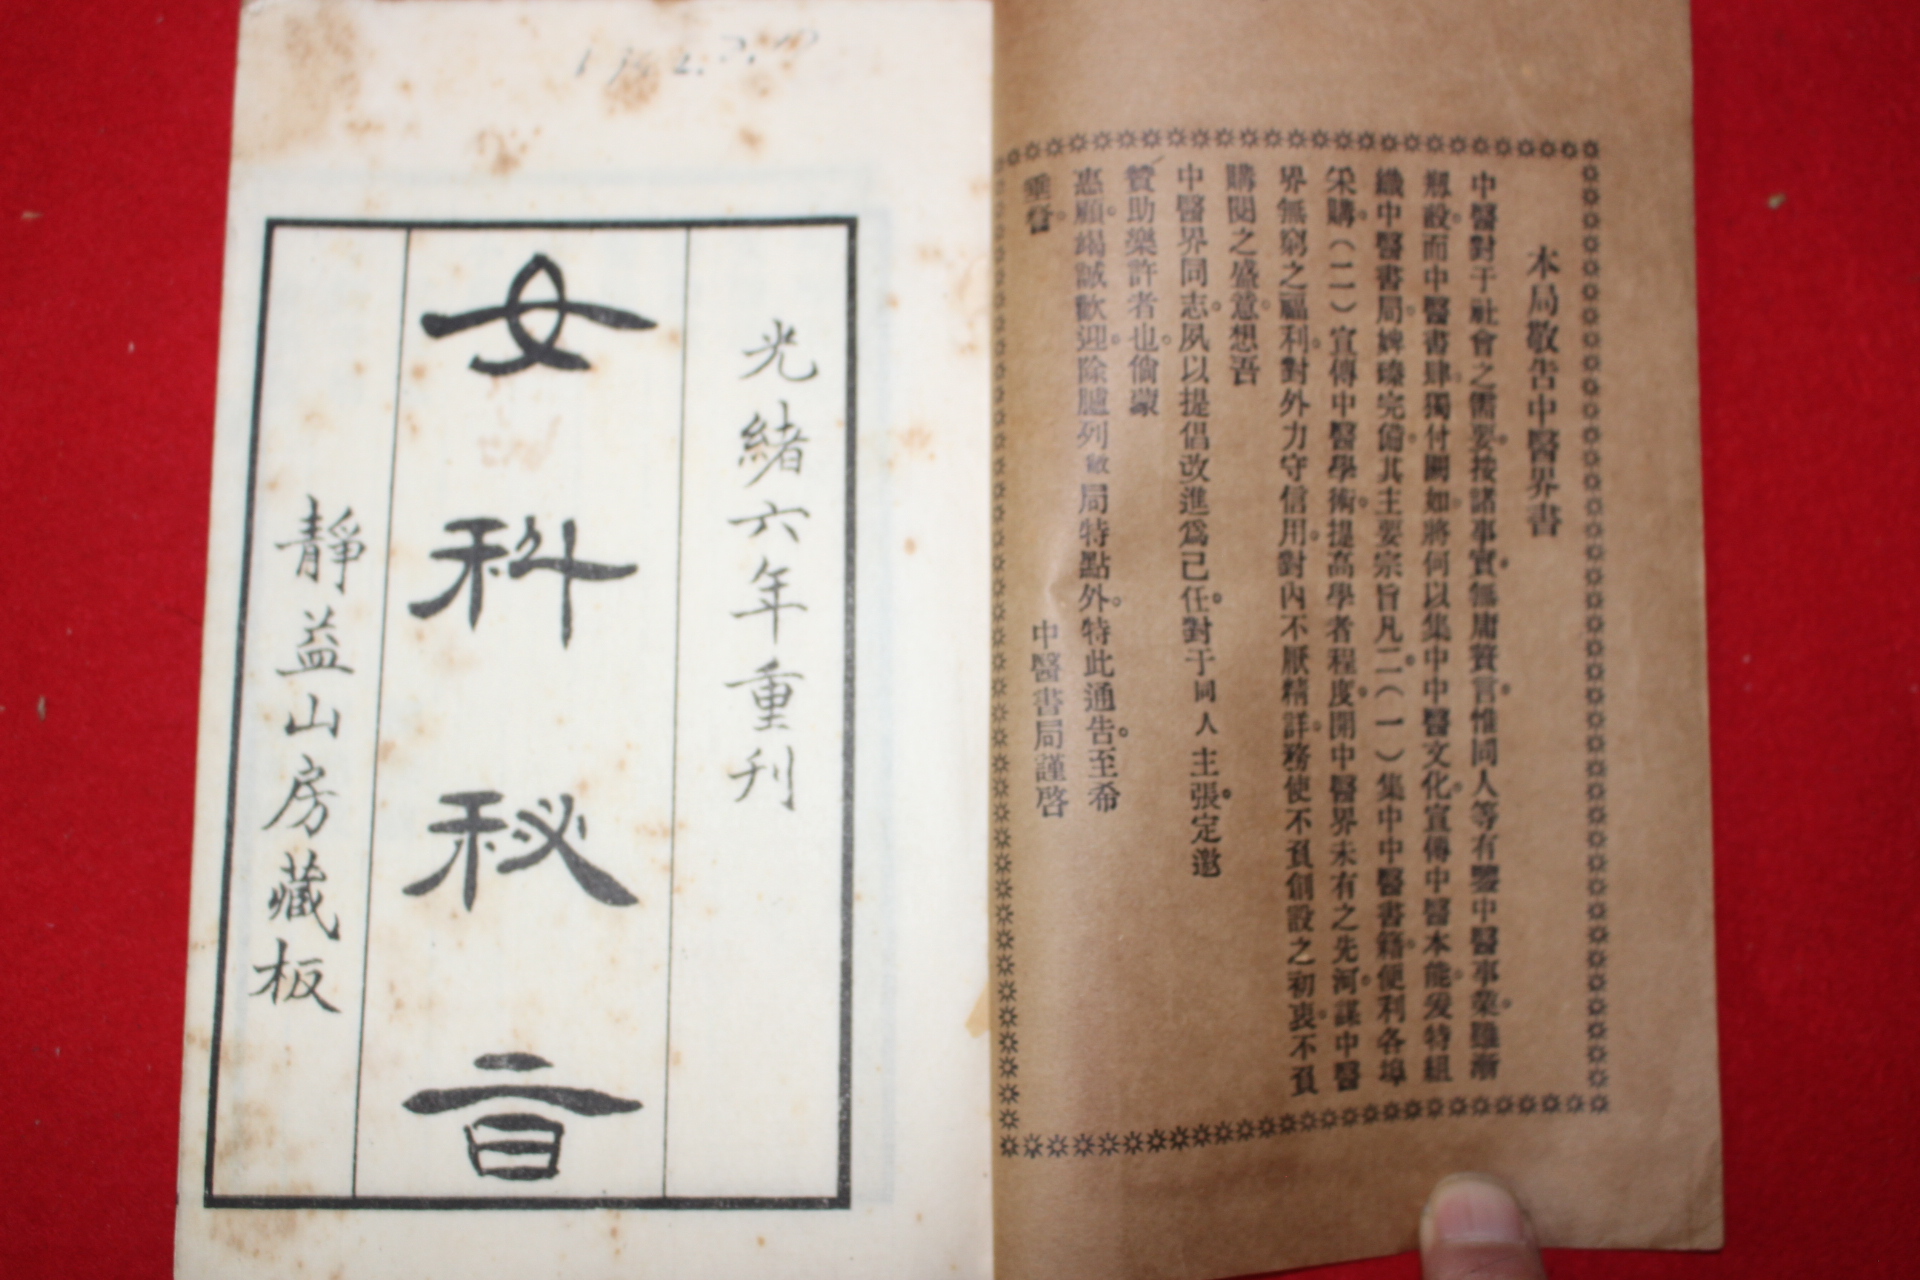 本局敬告中醫界書
中醫對于社會之需要按諸事實無庸贅言惟同人等有鑒中醫事業雖漸
刱設而中醫書肆獨付闕如將何以集中中醫文化宣傳中醫本能爰特組
織中醫書局完備其主要宗旨凡二(一)集中中醫書籍便利各埠
采購(二)宣傳中醫學術提高學者程度開中醫界未有之先河謀中醫
界無窮之福利對外力守信用對內不厭精詳務使不負創設之初衷不負
購閱之盛意想吾
中醫界同志夙以提倡改進爲己任對于同人主張定邀
贊助樂許者也倘蒙
惠顧竭誠歡迎除臚列敝局特點外特此通告至希
垂詧
中醫書局謹啓
光緒六年重刊
女科秘旨
靜益山房藏板